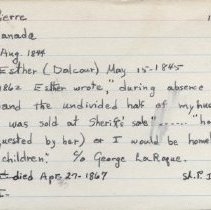 Pierre
Canada
Aug. 1844
Esther (Dalcour) May 15-1845
1862 Esther wrote, "during absence
and the undivided half of my hus
was sold at Sheriff's sale"......"he
quested by bar) or I would be home
children." c/o George LaRoque.
E died Apr. 27-1867
St. P. I